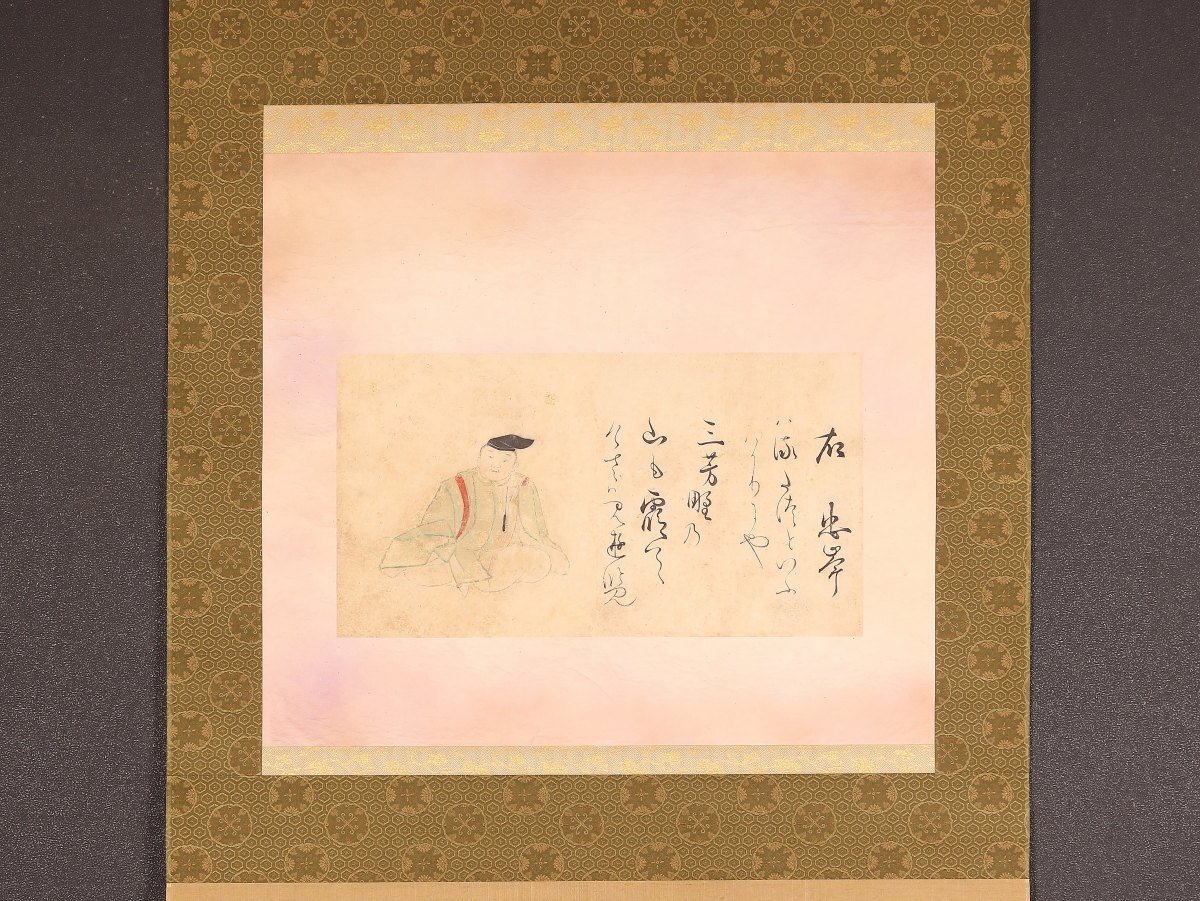 右 忠岑
はるたつといふ
はかりにや
三芳野乃
山も霞て
けさハ見遊覧